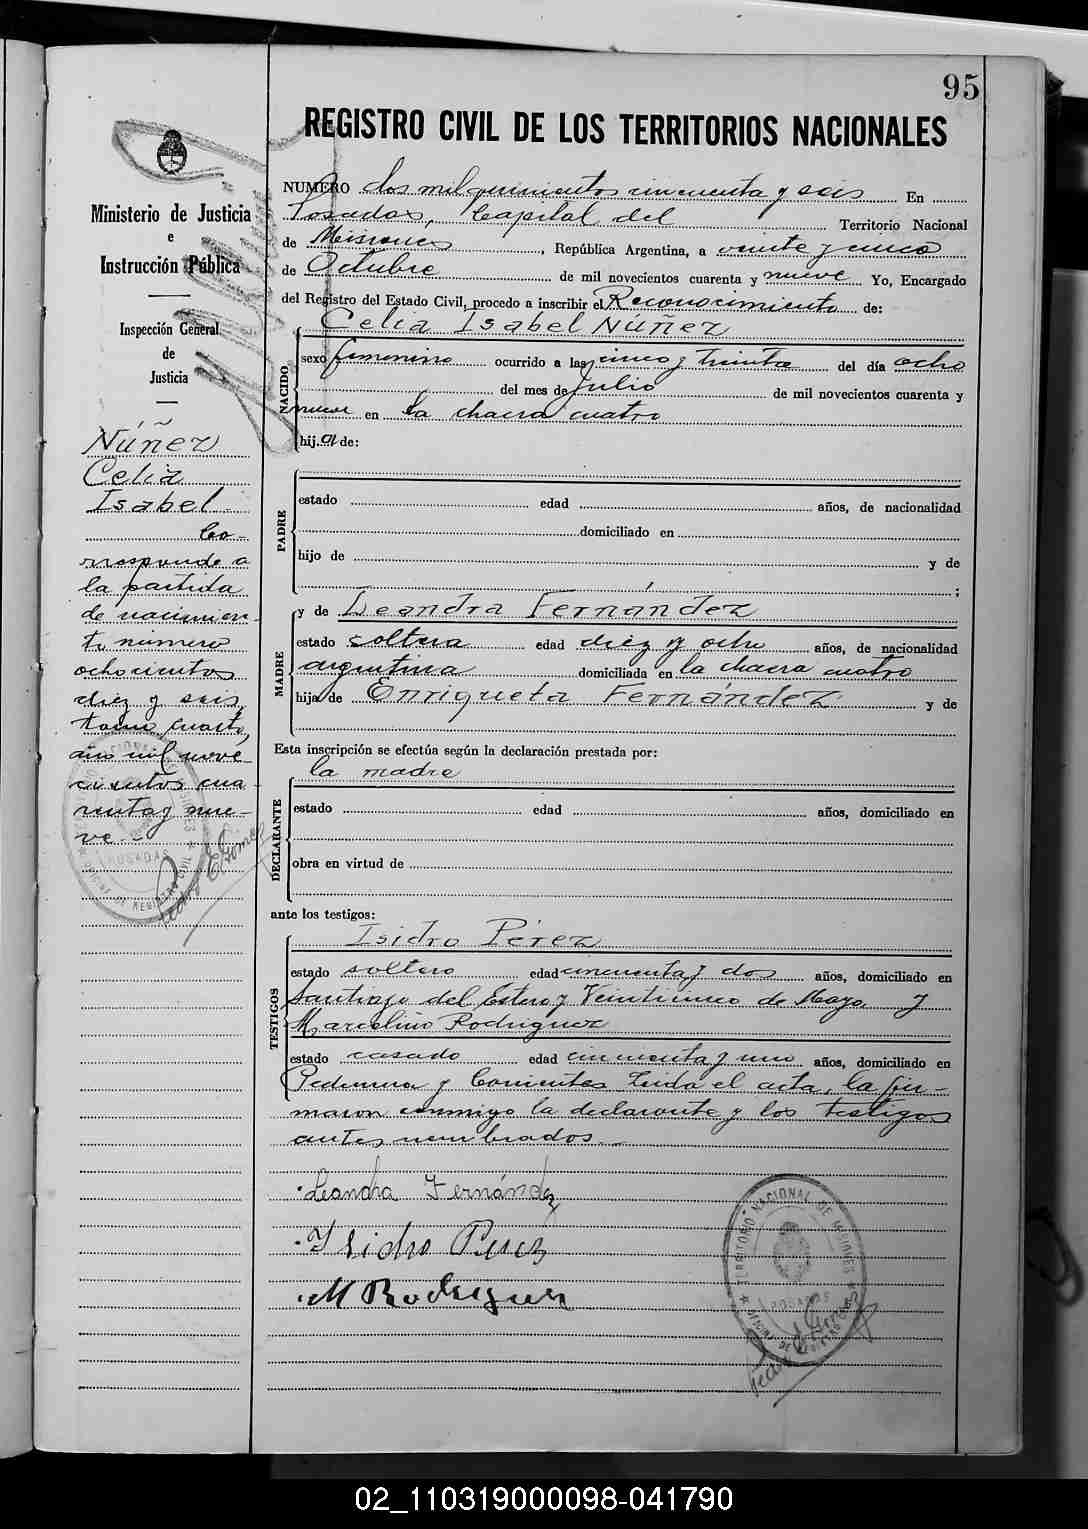 95
REGISTRO CIVIL DE LOS TERRITORIOS NACIONALES
Ministerio de Justicia
e
Instrucción Pública
Inspección General
de
Justicia
Núñez
Celia
Isabel
Co-
rresponde a
la partida
de nacimien-
to número
ochocientos
diez y seis,
tomo cuarto,
año mil nove-
cientos cua-
renta y nue-
ve.-
NUMERO dos mil quinientos cincuenta y seis En
Posadas, Capital del Territorio Nacional
de Misiones, República Argentina, a veinte y cinco
de Octubre de mil novecientos cuarenta y nueve Yo, Encargado
del Registro del Estado Civil, procedo a inscribir el Reconocimiento de:
Celia Isabel Núñez
NACIDO
sexo femenino ocurrido a las cinco y treinta del día ocho
del mes de Julio de mil novecientos cuarenta y
nueve en la chacra cuatro
hij a de:
PADRE
estado edad años, de nacionalidad
domiciliado en
hijo de y de
;
MADRE
y de Leandra Fernández
estado soltera edad diez y ocho años, de nacionalidad
argentina domiciliada en la chacra cuatro
hija de Enriqueta Fernández y de
Esta inscripción se efectúa según la declaración prestada por:
la madre
DECLARANTE
estado edad años, domiciliado en
obra en virtud de
ante los testigos:
TESTIGOS
Isidro Pérez
estado soltero edad cincuenta y dos años, domiciliado en
Santiago del Estero y Veinticinco de Mayo y
Marcelino Rodriguez
estado casado edad cincuenta y uno años, domiciliado en
Pedernera y Corrientes Leida el acta, la fir-
maron conmigo la declarante y los testigos
antes nombrados.-
Leandra Fernández
Isidro Perez
M Rodriguez
TERRITORIO NACIONAL DE MISIONES
POSADAS
OFICINA DE REGISTRO CIVIL
02_110319000098-041790